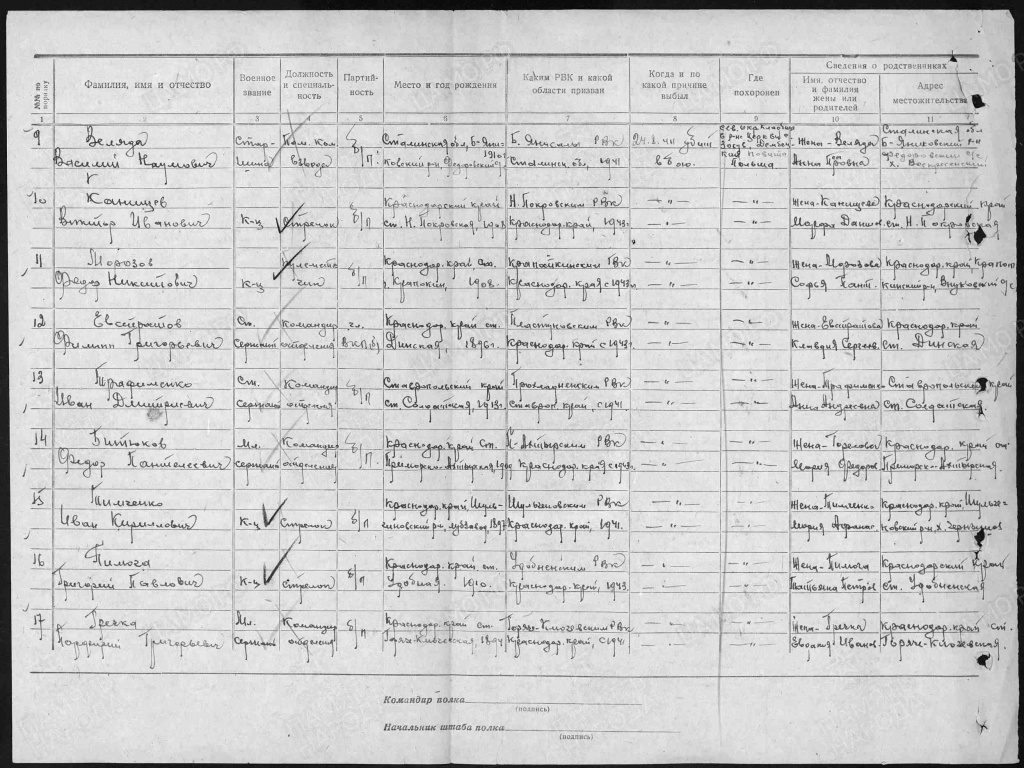 №№ по порядку
Фамилия, имя и отчество
Военное звание
Должность и специальность
Партийность
Место и год рождения
Каким РВК и какой области призван
Когда и по какой причине выбыл
Где похоронен
Сведения о родственниках
Имя, отчество и фамилия жены или родителей
Адрес местожительства
1 2 3 4 5 6 7 8 9 10 11
9 Веляда Стар- Пом. Ком. б Сталинская обл, Б-Яни- Б. Янисоль РВК 24.8.44 убит Жена-Веляда Сталинская обл
Василий Наумович шина взвода /П. ковский р-н, 1910 Сталинск. обл, 1941 в бою. Польша Анна Б-Яниковский р-н
10 Канищев б Краснодарский край Н. Покровским РВК — „ — — „ — Жена-Канищева Краснодарский край
Виктор Иванович К-ц Стрелок /П ст. Н. Покровская, 1908 Краснодар. край, 1943. Марфа Данил. ст. Н. Покровская
11 Морозов б Краснодар. край, ст. Крапоткинским РВК — „ — — „ — Жена-Морозова Краснодар. край,
Федор Никитович К-ц /П г. Крапоткин, 1908. Краснодар. края с 1943г. Софья Пант.
12 Евстратов Ст. Командир чл. Краснодар. край ст. Пластновским РВК — „ — — „ — Жена-Евстратова Краснодар. край
Филипп Григорьевич сержант отделения ВКП(б) Динская, 1896г. Краснодар. край с 1943г. Клавдия Сергеев. ст. Динская
13 Трафименко Ст. Командир б Ставропольский край Прохладненским РВК — „ — — „ — Жена-Трафимен. Ставропольский край
Иван Дмитриевич сержант отделения /П ст. Солдатская, 1913г. Ставроп. край, с 1941. Анна Андреевна ст. Солдатская
14 Битюков Мл. Командир б Краснодар. край ст. П-Ахтырским РВК — „ — — „ — Жена- Краснодар. край ст.
Федор Пантелеевич сержант отделения /П. Приморско-Ахтырская, Краснодар. края с 1943г. Мария Федоров. Приморск-Ахтырская.
15 Тимченко б Краснодар. край, РВК — „ — — „ — Жена-Тимченко Краснодар. край,
Иван Кириллович К-ц Стрелок /П 1897 Краснодар. край, 1941. Мария Афанас.
16 Пимога б Краснодар. край, ст. Удобненским РВК — „ — — „ — Жена-Пимога Краснодарский край
Григорий Павлович К-ц Стрелок /П Удобная. 1910. Краснодар. край, 1943 Татьяна Петров ст. Удобненская
17 Гречка Мл. Командир б Краснодар. край ст. Горяче-Ключевским РВК — „ — — „ — Жена-Гречка Краснодар. край ст.
Порфирий Григорьевич Сержант отделения /П Горяче-Ключевская, Краснодар. край, с 1941. Евдокия Иванов. Горяче-Ключевская.
Командир полка
(подпись)
Начальник штаба полка
(подпись)